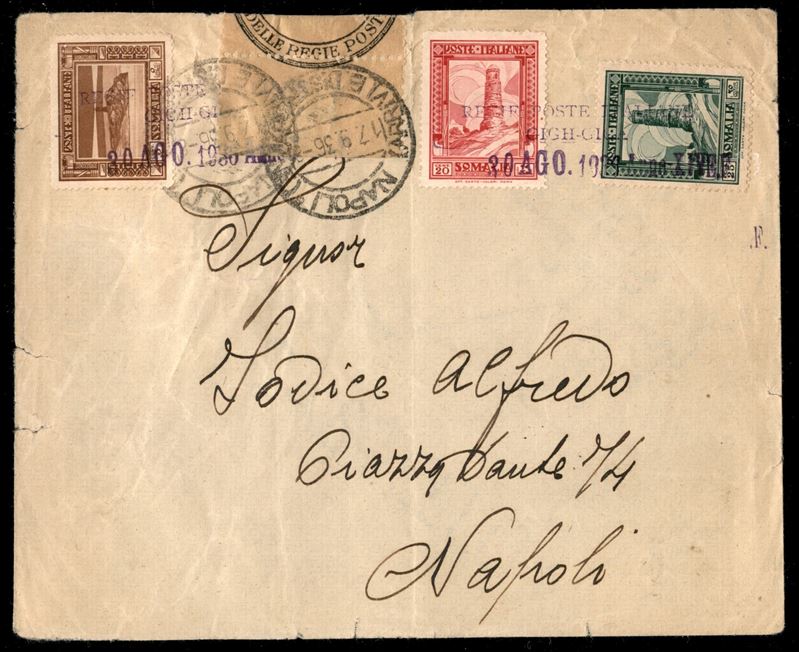 DELLE REGIE POST
POSTE ITALIANE
SOMALIA
REGIE POSTE
GIGH-GI
30 AGO. 1936 Anno
NAPOLI
17.9.36
POSTE·ITALIANE
20
SOMALIA
REGIE POSTE ITALIANE
GIGH-GI
30 AGO. 1936 Anno XIV E.F.
POSTE·ITALIANE
SOMALIA
.F.
Signor
Iodice Alfredo
Piazza Dante 74
Napoli